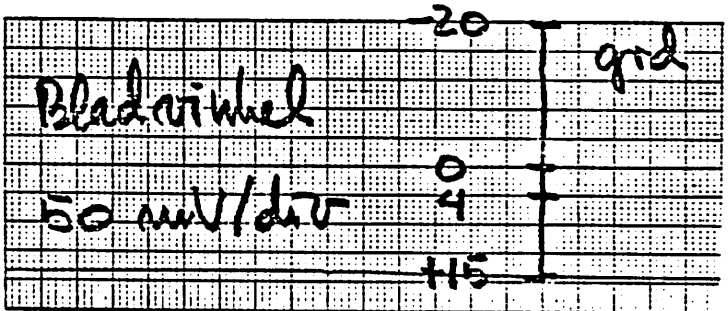 -20
grd
Bladvinkel
0
50 mV/div
4
+15